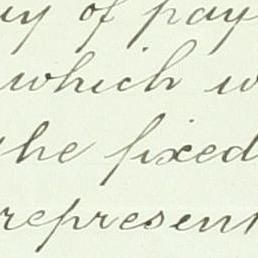 of pay
which w
the fixed
represent